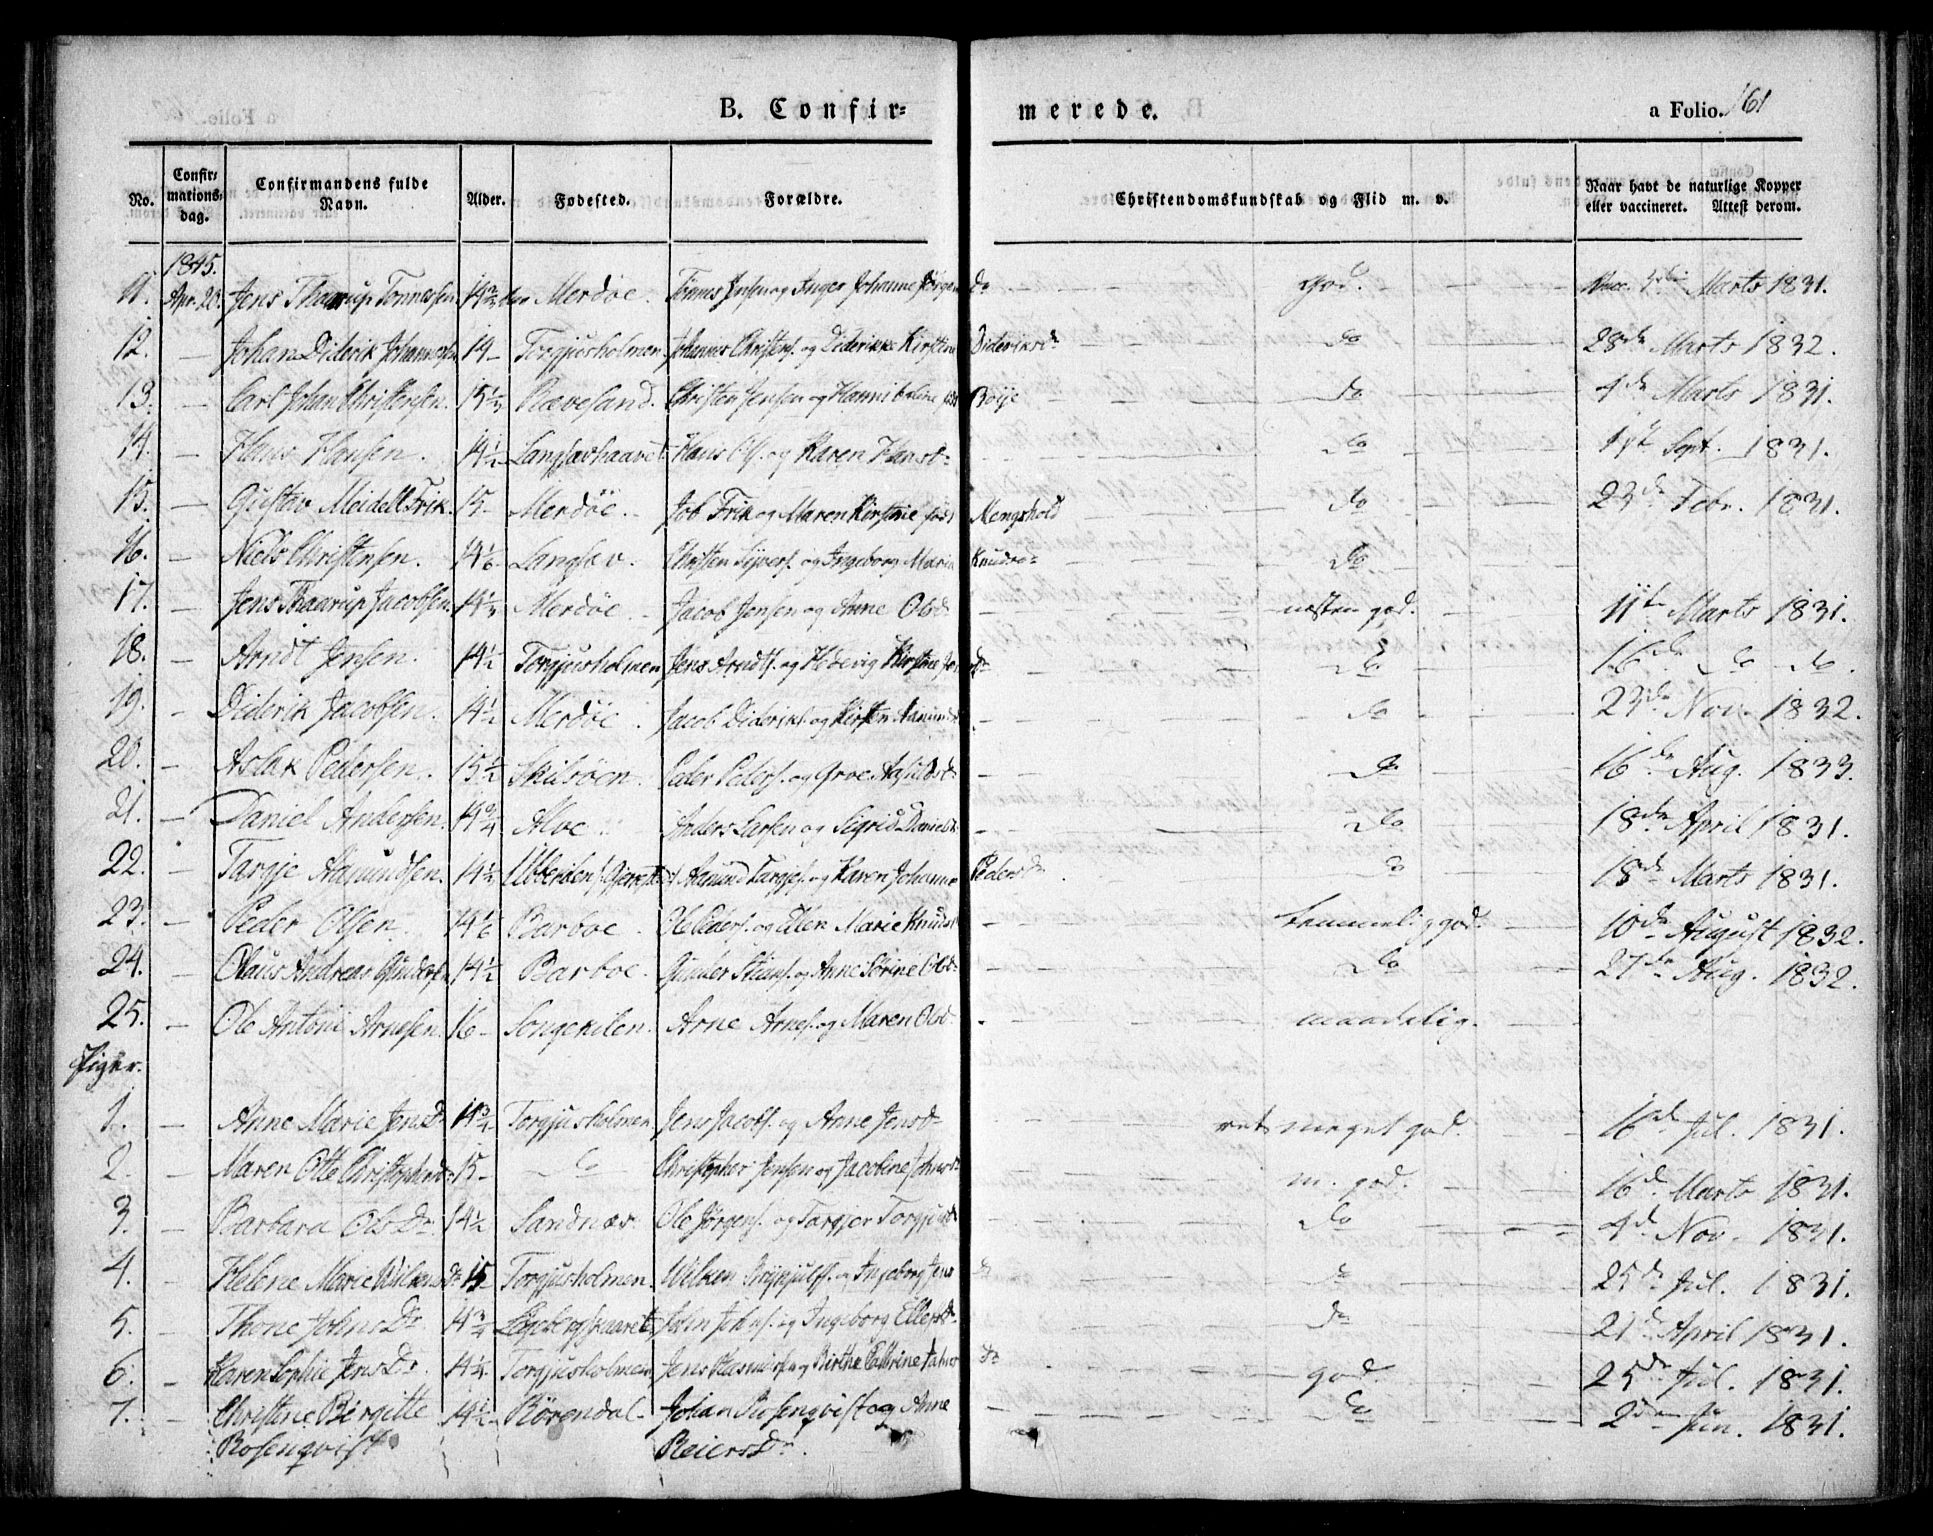 B. Confirmerede. a Folio. 161
No. Confirmationsdag. Confirmandens fulde Navn. Alder. Fødested. Forældre. Christendomskundskab og Flid m. v. Naar havt de naturlige Kopper eller vaccineret. Attest derom.
1845.
11. Apr. 20. Jens Thaarup Tønnessen Merdöe. Tönnes Jensen og Inger Johanne Jörgens D. God. Marts 1831.
12. — Johan Diderik Johannessen 14 – Torgjusholmen Johannes Christens. og Diderikke Kirstine Dideriksd. Do 28de Marts 1832.
13. — Carl Johan Christensen. 15 1/2 Rævesand. Christen Jensen og Hannibaline født Böije Do 4de Marts 1831.
14. — Hans Hansen. 14 1/2 Hans Ols. og Karen Hansd. Do Sept. 1831.
15. — Gustav Meidell Frik. 15 – Merdöe. Job Frik og Maren Kirstine født Mengshold Do 23de Febr. 1831.
16. — Niels Christensen. 14 1/6 Langsæv. Christen Sijvers. og Ingeborg Maria Knudsd. Do
17. — Jens Thaarup Jacobsen. 14 1/2 Merdöe Jacob Jensen og Anne Olsd. næsten god. 11te Marts 1831.
18. — Arndt Jensen. 14 1/2 Torgjusholmen Jens Arndts. og Hedevig Kirstine D. Do 16de Do Do.
19. — Diderik Jacobsen. 14 1/2 Merdöe. Jacob Dideriks. og Kirsten Aanunds Do 23de Nov. 1832.
20. — Aslak Pedersen. 15 1/2 Skilsöen. Peder Peders. og Groe Do 16de Aug. 1833.
21. — Daniel Andersen. 14 3/4 Alve Anders Larsen og Sigrid Danielsd. Do 18de April 1831.
22. — Targje Aanundsen. 14 1/2 Ubberöen Aanund Targjes. og Karen Johanne Pedersd. Do 18de Marts 1831.
23. — Peder Olsen 14 1/6 Barboe. Ole Peders. og Elen Marie Knudsd. temmelig god. 10de August 1832.
24. — Olaus Andreas Gunders. 14 1/2 Barboe. Gunder Stians. og Anne Sörine Olsd. Do 27de Aug. 1832.
25. — Ole Antoni Arnesen. 16 – Songekilen. Arne Arnes. og Maren Olsd. maadelig.
Piger.
1. — Anne Marie Jensd. 14 3/4 Torgjusholmen. Jens Jacobs. og Anne Jensd. ret meget god. 16de Jul. 1831.
2. — Maren Otte Christophersd. 15 – Do Christopher Jensen og Jacobine m. god. 16de Marts 1831.
3. — Barbara Olsdr. 14 1/2 Sandnæs. Ole Jörgens. og Targjer Torgjusd. Do 4de Nov. 1831.
4. — Helene Marie Wilkensdr. 15 Torgjusholmen. Wilken og Ingeborg Jens D. Do 25de Jul. 1831.
5. — Thone Johnsdr. 14 3/4 John Johns. og Ingeborg Ellefsd. Do 21de April 1831.
6. — Karen Sophie Jensdr. 14 1/4 Torgjusholmen Jens Rasmussen og Birthe Cathrine D. god. 25de Jul. 1831.
7. — Christine Birgitte 14 1/2 Rörendal. Johan Rosenqvist og Anne Do 2den Jun. 1831.
Rosenqvist Reiersdr.